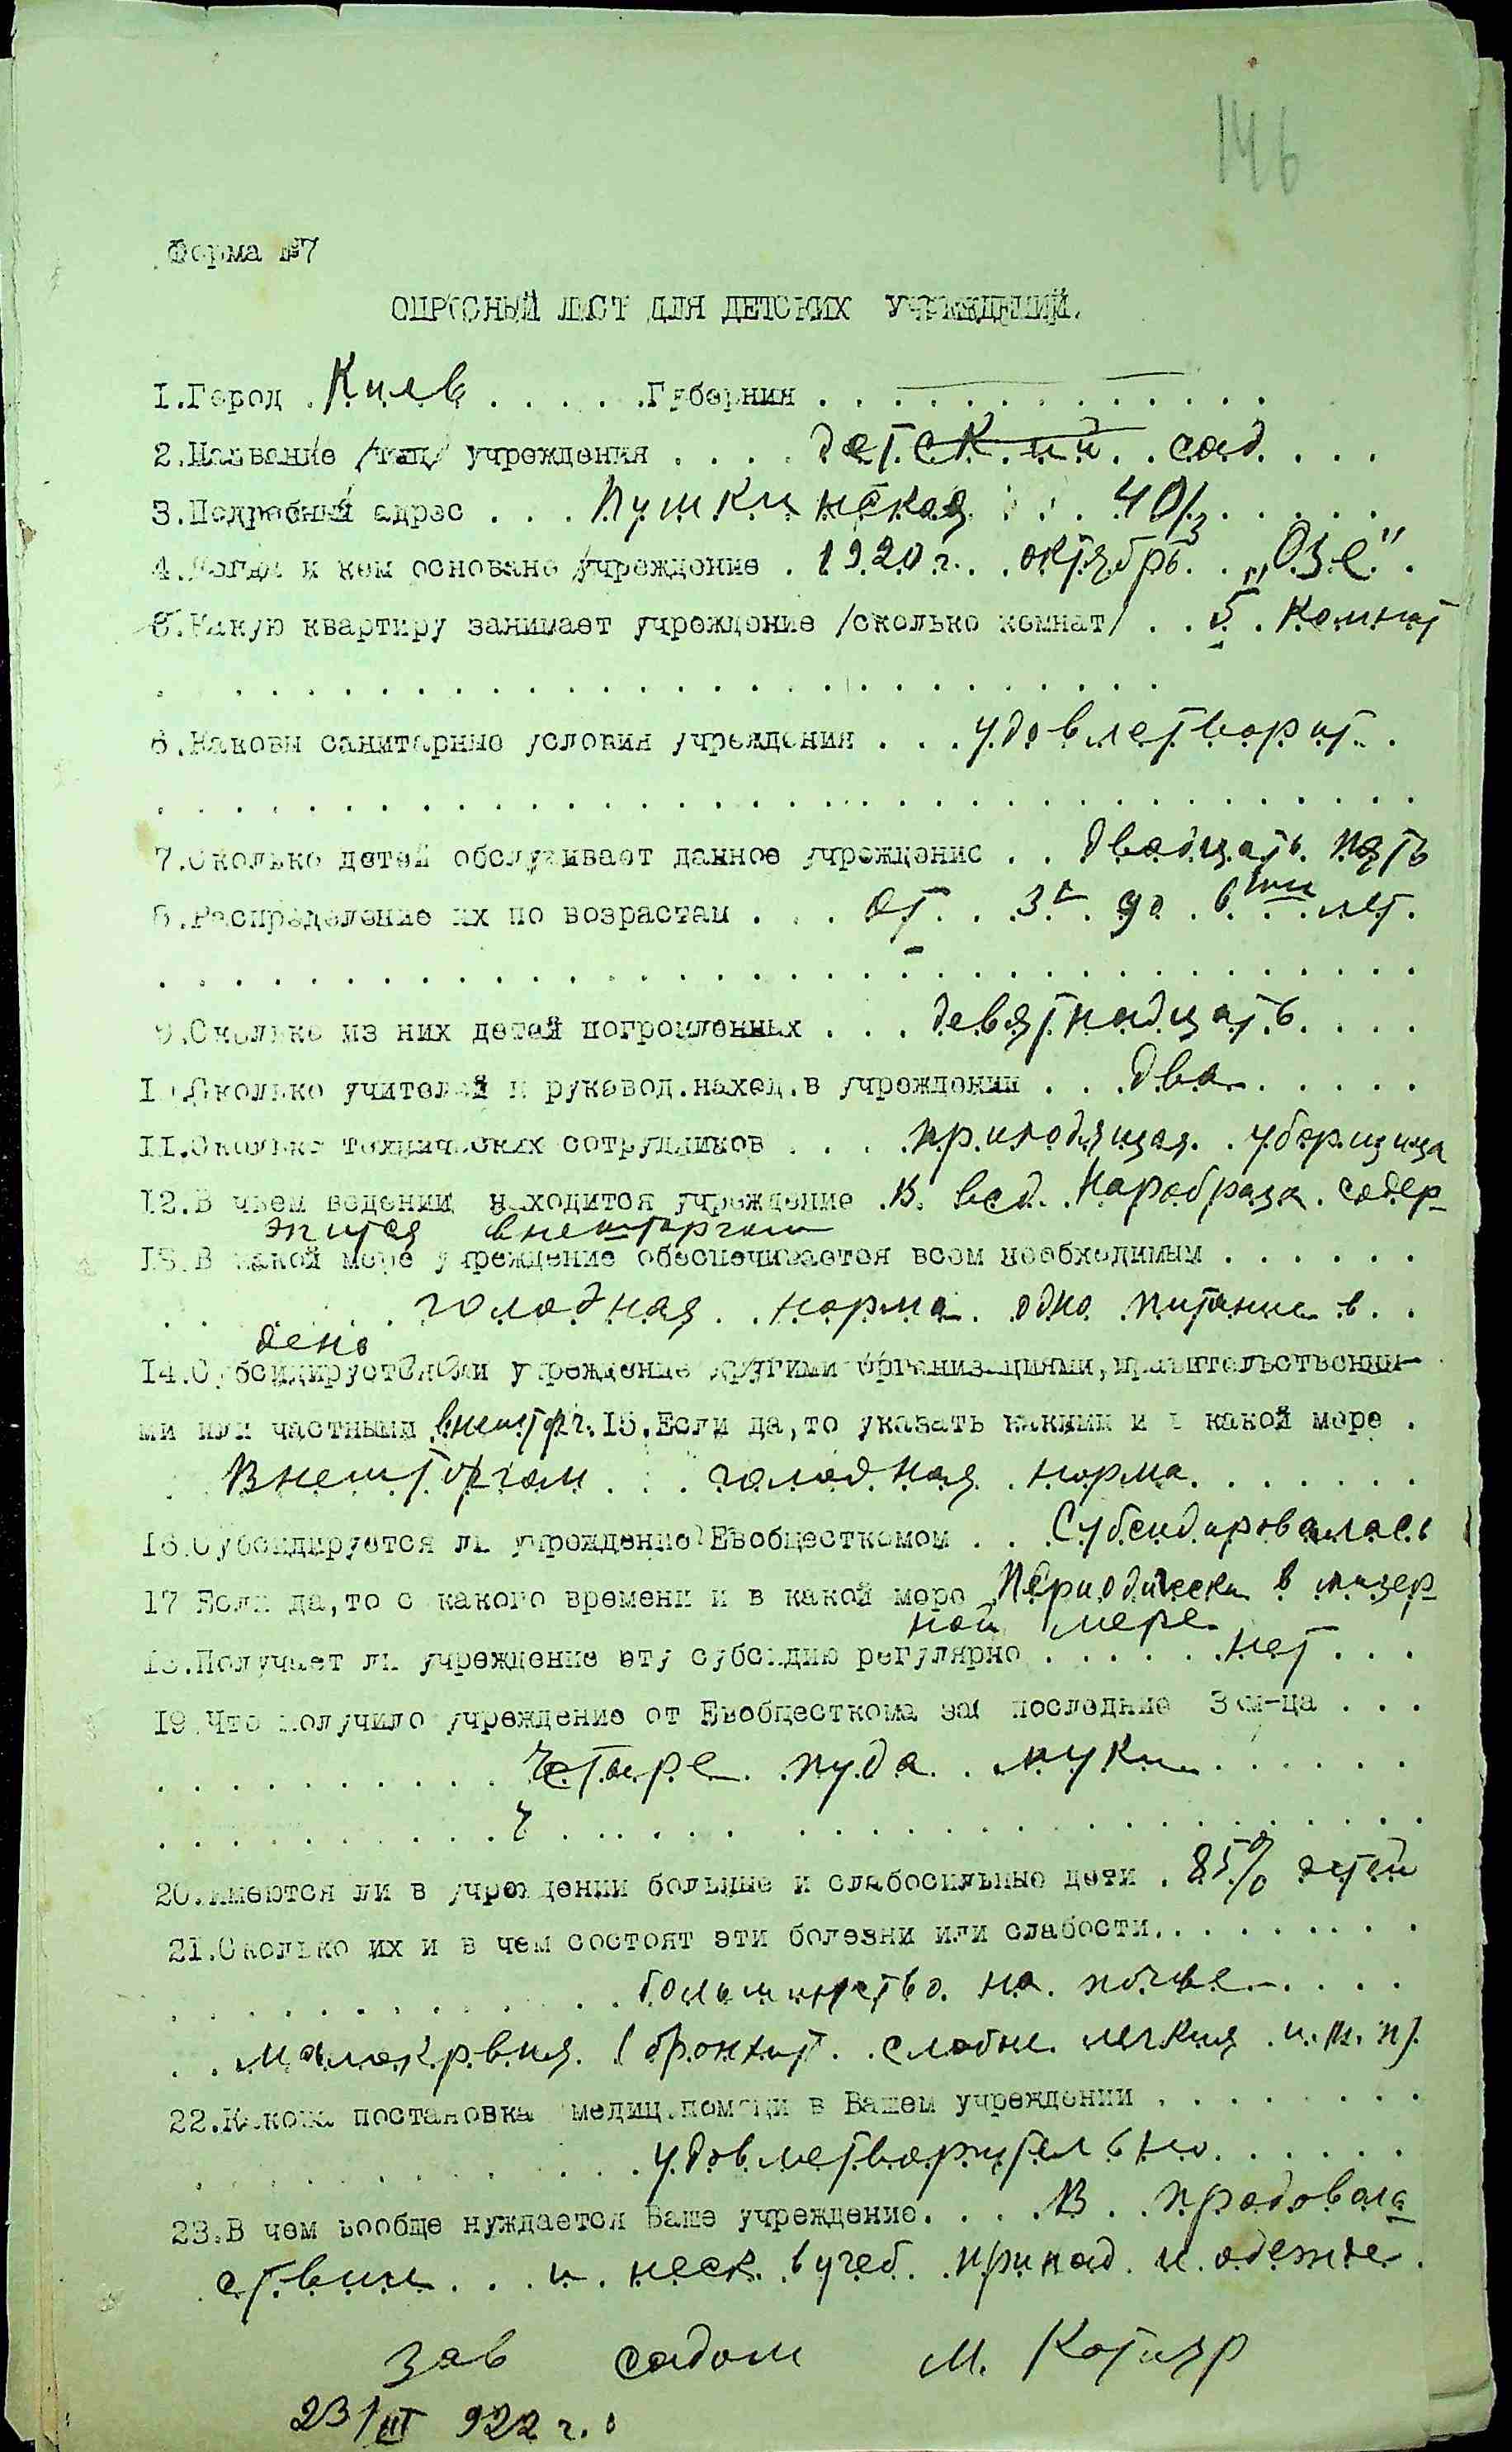 146
Форма №7
ОПРОСНЫЙ ЛИСТ ДЛЯ ДЕТСКИХ УЧРЕЖДЕНИЙ.
1.Город . Киев . . . . . .Губерния . . . . . . . . . . . . .
2.Название /тип/ учреждения . . . . детский сад. . . .
3.Подробный адрес . . . Пушкинская . . . 40/3 . . . . .
4.Когда и кем основано учреждение . 1920 г. . октябрь . . „Озе" .
5.Какую квартиру занимает учреждение /сколько комнат/ . . 5 . комнат
6.Каковы санитарные условия учреждения . . . удовлетворит. .
7.Сколько детей обслуживает данное учреждение . . двадцать пять
8.Распределение их по возрастам . . . от . . 3х до . 6ти лет.
9.Сколько из них детей погромленных . . . девятнадцать . . . .
10.Сколько учителей и руковод.наход.в учреждении . . . два . . . . .
11.Сколько технических сотрудников . . . . приходящая . уборщица
12.В чьем ведении находится учреждение . В . вед. Наробраза . содер-
жится внешторгом
13.В какой мере учреждение обеспечивается всем необходимым . . . . . .
. . . . . голодная . . норма . одно питание в . .
день
14.Субсидируется ли учреждение другими организациями,правительственны-
ми или частными .внешторг. 15.Если да,то указать какими и в какой мере .
. Внешторгом . . . голодная . норма . . . . . . .
16.Субсидируется ли учреждение Евобщесткомом . . Субсидировалась
17.Если да,то с какого времени и в какой мере .Периодически в мизер-
ной мере
18.Получает ли учреждение эту субсидию регулярно . . . . . . нет . . .
19.Что получило учреждение от Евобщесткома за последние 3 м-ца . . .
. . . . . . . . . . Четыре . пуда . . муки . . . . . .
20.Имеются ли в учреждении больные и слабосильные дети . 85% детей
21.Сколько их и в чем состоят эти болезни или слабости. . . . . . . . .
. . . . . . . . . . . большинство . на . почве . . . .
. . малокровия . ( бронхит . . слабые . легкия . и.т.п).
22.Какова постановка медиц.помощи в Вашем учреждении . . . . . . . .
. . . . . . . . . . . удовлетворительно . . . . . .
23.В чем вообще нуждается Ваше учреждение. . . . В . . продоволь-
ствии . . . и . неск. в учеб. . принад. и . одежде .
Зав садом М. Котляр
23/III 922 г.